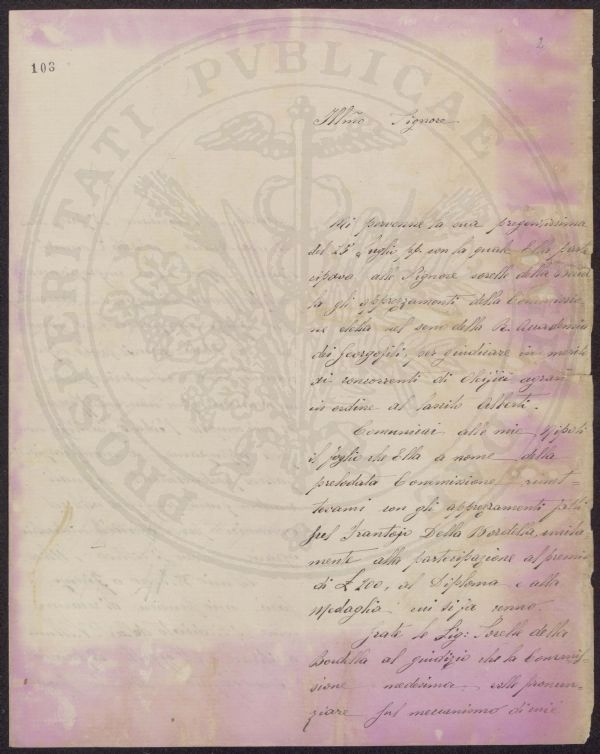 103
2
PROSPERITATI PVBLICAE
Illmo Signore
Mi pervenne la sua pregiatissima
del 25 Luglio pp. con la quale Ella parte
cipava alle Signore sorelle della
gli apprezzamenti della Commissio
ne eletta nel seno della R. Accademia
dei Georgofili, per giudicare in merito
di concorrenti di agrari
in ordine al lascito Alberti.
Comunicai alle mie Nipoti
il foglio che Ella a nome della
prelodata Commissione, rimet=
tevami con gli apprezzamenti fatti
sul Frantojo Della Bordella, unita
mente alla partecipazione al premio
di £ 200, al Diploma e alla
Medaglia
grate le Sig: Sorelle della
Bordella al giudizio che la Commis=
sione medesima volle pronun=
ziare sul meccanismo di